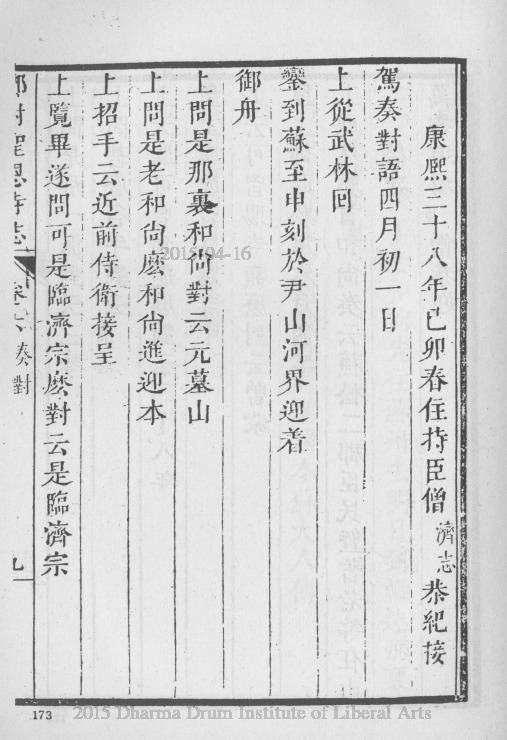 康熙三十八年己卯春住持臣僧濟志恭紀接
駕奏對語四月初一日
上從武林回
鑾到蘇至申刻於尹山河界迎着
御舟
上問是那裏和尚對云元墓山
上問是老和尚麼和尚進迎本
上招手云近前侍衛接呈
上覽畢遂問可是臨濟宗麼對云是臨濟宗
鄧尉聖恩寺志 卷六 奏對 九
2015-04-16
173
2015 Dharma Drum Institute of Liberal Arts